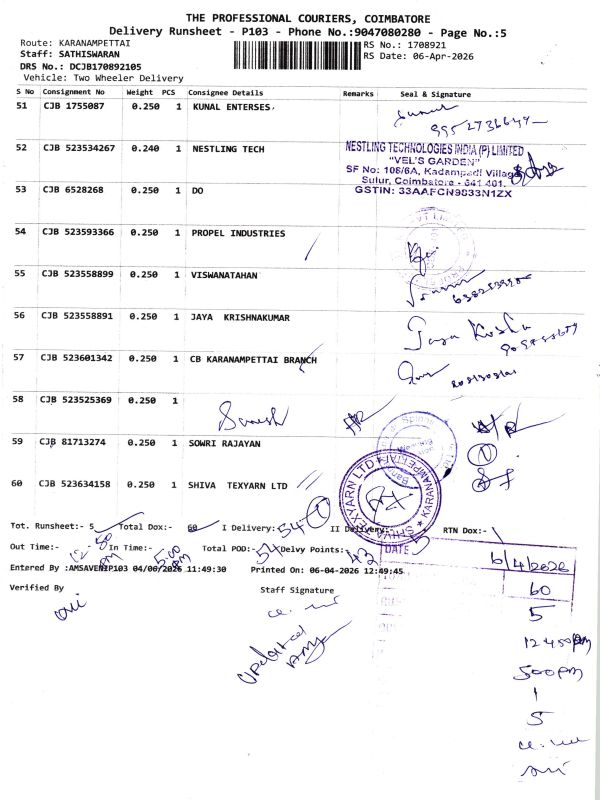 THE PROFESSIONAL COURIERS, COIMBATORE
Delivery Runsheet - P103 - Phone No.:9047080280 - Page No.:5
Route: KARANAMPETTAI RS No.: 1708921
Staff: SATHISWARAN RS Date: 06-Apr-2026
DRS No.: DCJB170892105
Vehicle: Two Wheeler Delivery
S No Consignment No Weight PCS Consignee Details Remarks Seal & Signature
51 CJB 1755087 0.250 1 KUNAL ENTERSES
52 CJB 523534267 0.240 1 NESTLING TECH
NESTLING TECHNOLOGIES INDIA (P) LIMITED
"VEL'S GARDEN"
SF No: 106/6A, Kadampadi Village
Sulur, Coimbatore - 641 401.
GSTIN: 33AAFCN9833N1ZX
53 CJB 6528268 0.250 1 DO
54 CJB 523593366 0.250 1 PROPEL INDUSTRIES
55 CJB 523558899 0.250 1 VISWANATAHAN
56 CJB 523558891 0.250 1 JAYA KRISHNAKUMAR
57 CJB 523601342 0.250 1 CB KARANAMPETTAI BRANCH
58 CJB 523525369 0.250 1
Suresh
59 CJB 81713274 0.250 1 SOWRI RAJAYAN
60 CJB 523634158 0.250 1 SHIVA TEXYARN LTD
SHIVA TEXYARN LTD KARANAMPETTAI
Tot. Runsheet:- 5 Total Dox:- 60 I Delivery:- 54 II Delivery:- RTN Dox:- 1
Out Time:- In Time:- 5.00 pm Total POD:- 54 Delvy Points:- 43
DATE 6/4/2026
Entered By :AMSAVENIP103 04/06/2026 11:49:30 Printed On: 06-04-2026 12:49:45
60
Verified By Staff Signature
5
Updated
12450pm
500pm
1
5